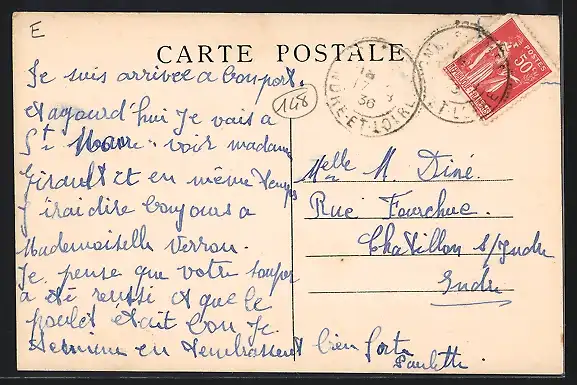 E
CARTE POSTALE
Je suis arrivée a bon port.
148
et aujourd'hui Je vais a
St Maure voir madame
Girault et en même temps
J'irai dire bonjours a
Mademoiselle Verron.
Je pense que votre souper
a été reussi et que le
poulet était bon Je
termine en t'embrassant bien fort
Paulette
INDRE ET LOIRE
17 36
POSTES
50c
Melle M. Diné.
Rue Fourchue.
Chatillon s/Indre
Indre